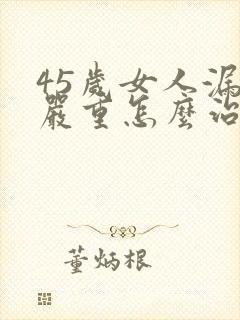 45歲女人漏
嚴重怎麼治
董炳根